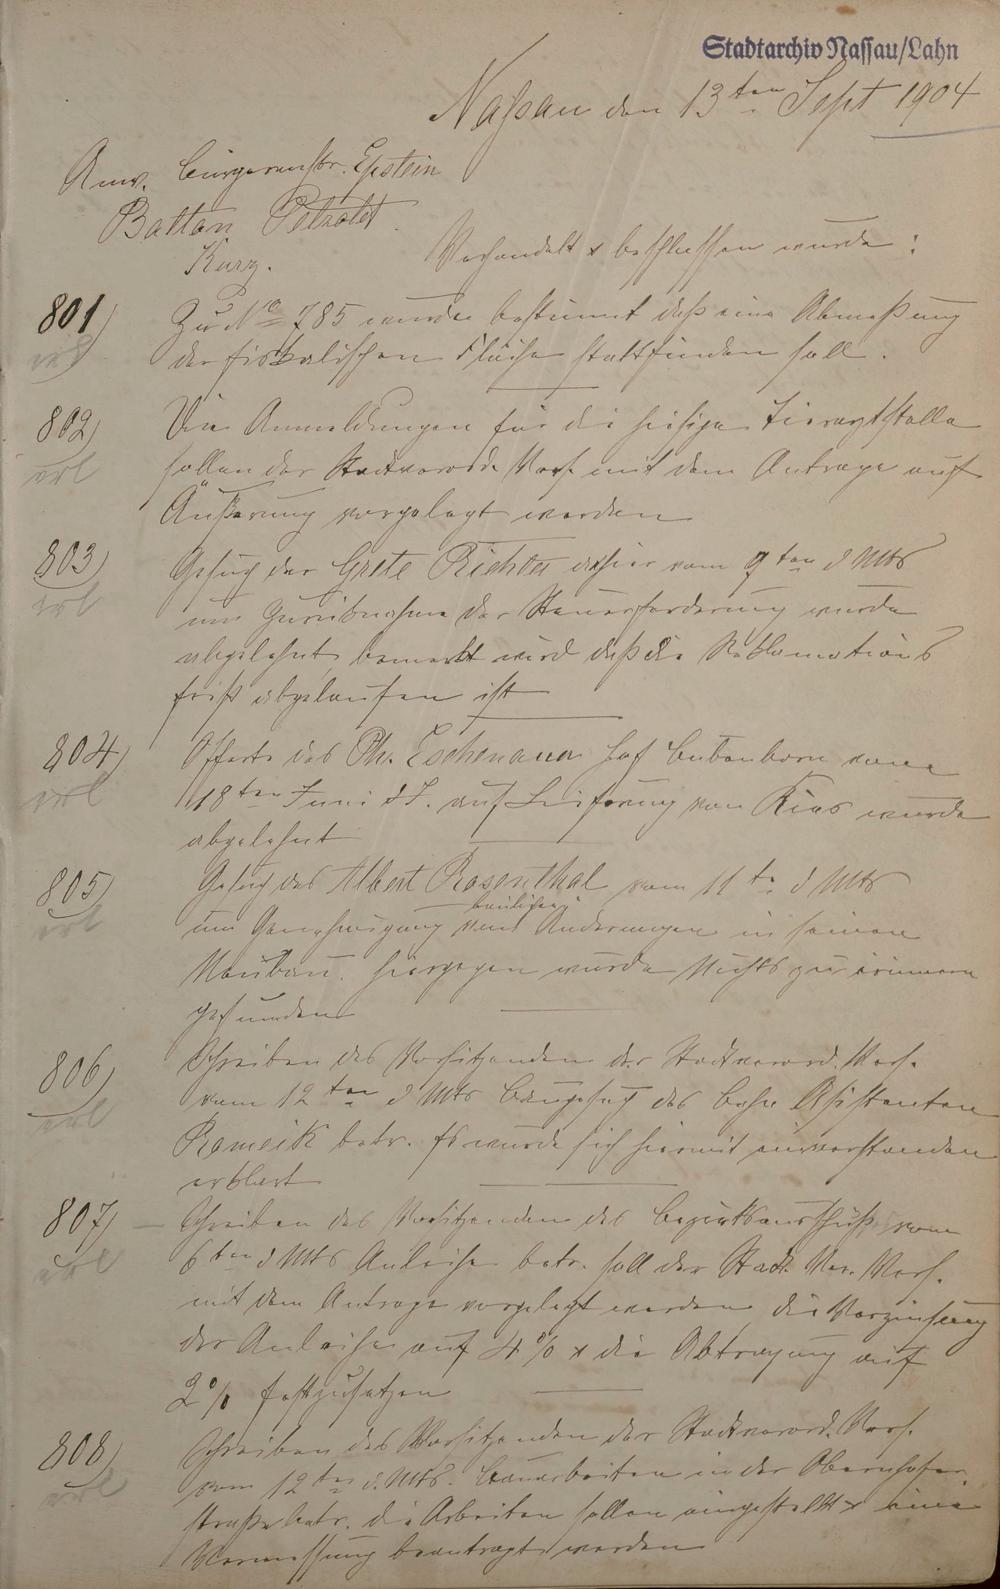 Stadtarchiv Nassau/Lahn
Nassau den 13ten Sept 1904
Anw. Bürgermstr. Epstein
Balzar Petzold
Kurz.
Verhandelt & beschlossen wurde:
801) Zu No 785 wurde bestimmt daß eine Abmessung
erl der fiskalischen Fläche stattfinden soll.
802) Die Anmeldungen für die hiesige Tierarztstelle
erl sollen der Stadtverordn. Vers. mit dem Antrage auf
Äußerung vorgelegt werden
803) Gesuch der Grete Richter dahier vom 9ten d Mts
erl um Zurücknahme der Steuerforderung wurde
abgelehnt, bemerkt wird daß die Reklamations
frist abgelaufen ist
804) Offerte des Ph. Eschenauer Hof Bubenborn vom
erl 18ten Juni d J. auf Lieferung von Kies wurde
abgelehnt
805) Gesuch des Albert Rosenthal vom 11te d Mts
baulichen
erl um Genehmigung von Änderungen in seinem
Neubau. hiergegen wurde Nichts zu erinnern
gefunden
806) Schreiben des Vorsitzenden der Stadtverord. Vers.
erl vom 12ten d Mts Baugesuch des Bahn Assistenten
Rameik betr. Es wurde sich hiermit einverstanden
erklärt
807) Schreiben des Vorsitzenden des Bezirksausschuß vom
erl 6ten d Mts Anleihe betr. soll der Stadt. Ver. Vers.
mit dem Antrage vorgelegt werden, die Verzinsung
der Anleihe auf 4% & die Abtragung auf
2% festzusetzen
808) Schreiben des Vorsitzenden der Stadtverord. Vers.
erl vom 12ten d. Mts. Bauarbeiten in der Obernhofer
straße betr. die Arbeiten sollen eingestellt & eine
Vermessung beantragt werden